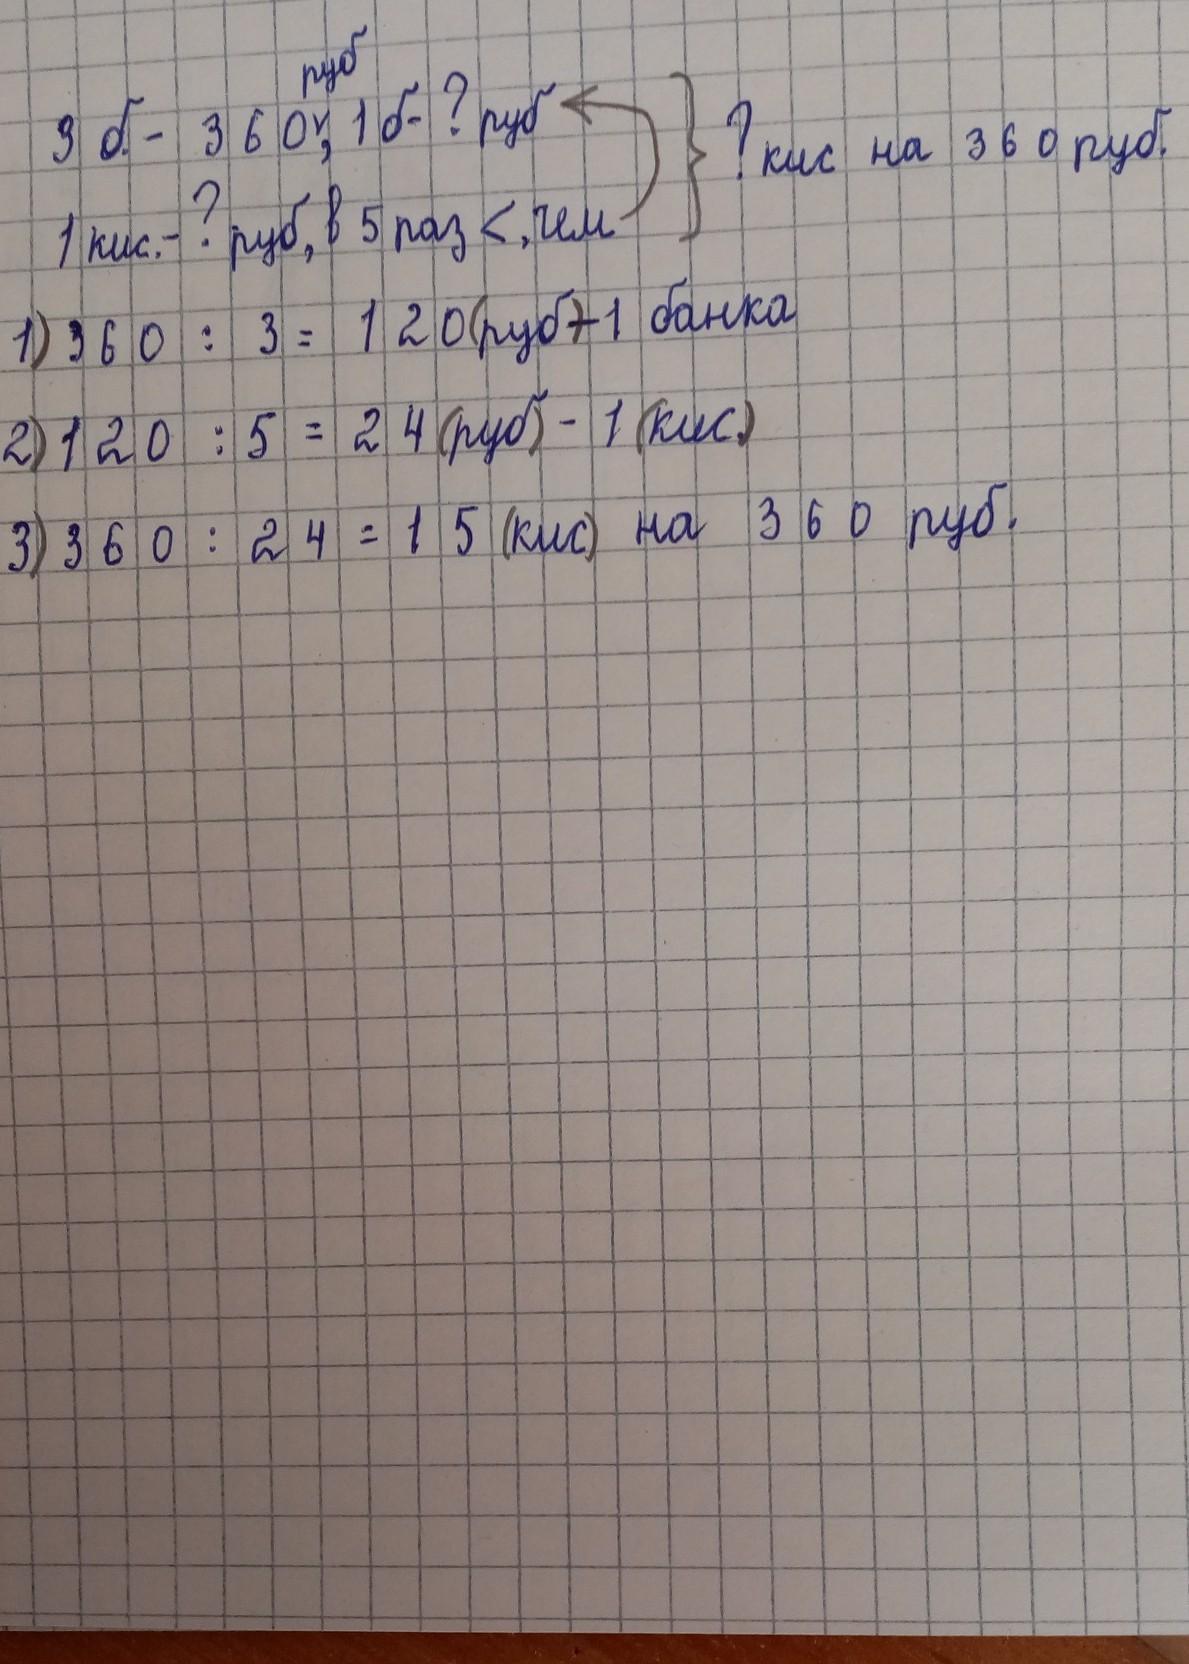 руб
3 б. - 360; 1 б - ? руб } ? кис на 360 руб.
1 кис. - ? руб, в 5 раз <, чем
1) 360 : 3 = 120 (руб) - 1 банка
2) 120 : 5 = 24 (руб) - 1 (кис.)
3) 360 : 24 = 15 (кис) на 360 руб.